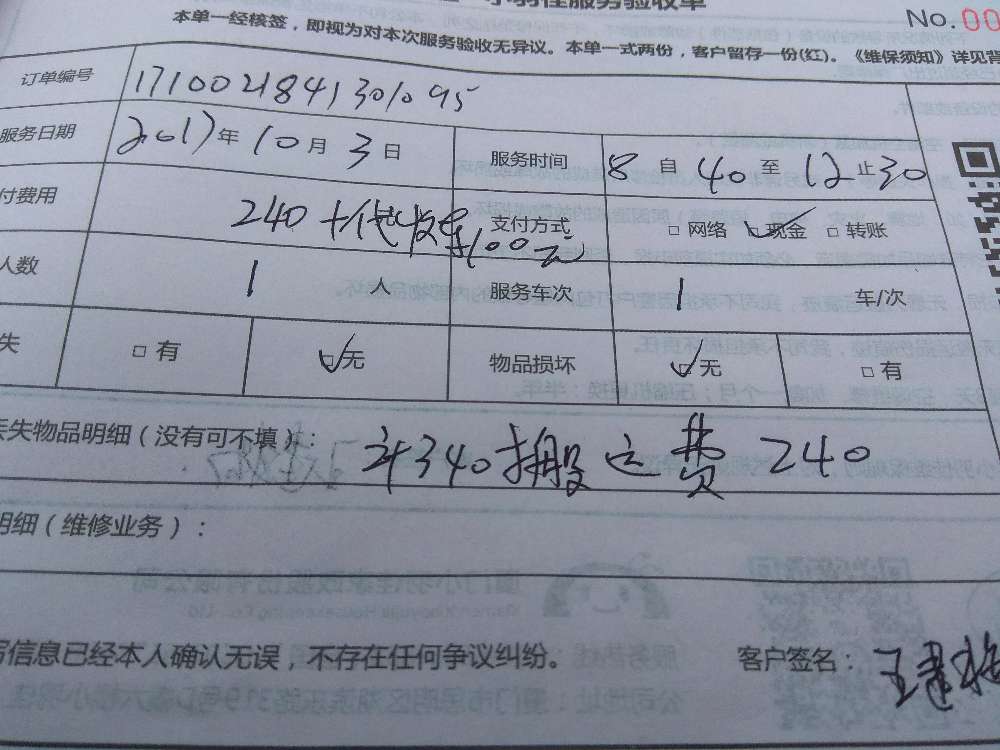 服务验收单
No. 00
本单一经核签，即视为对本次服务验收无异议。本单一式两份，客户留存一份(红)。《维保须知》详见背
订单编号 1710021841301095
服务日期 2017年10月3日 服务时间 8自40至12止30
付费用 240+代收车100元 支付方式 □网络 ☑现金 □转账
人数 1人 服务车次 1 车/次
失 □有 ☑无 物品损坏 ☑无 □有
失物品明细（没有可不填）：共340搬运费240
明细（维修业务）：
写信息已经本人确认无误，不存在任何争议纠纷。 客户签名：王建